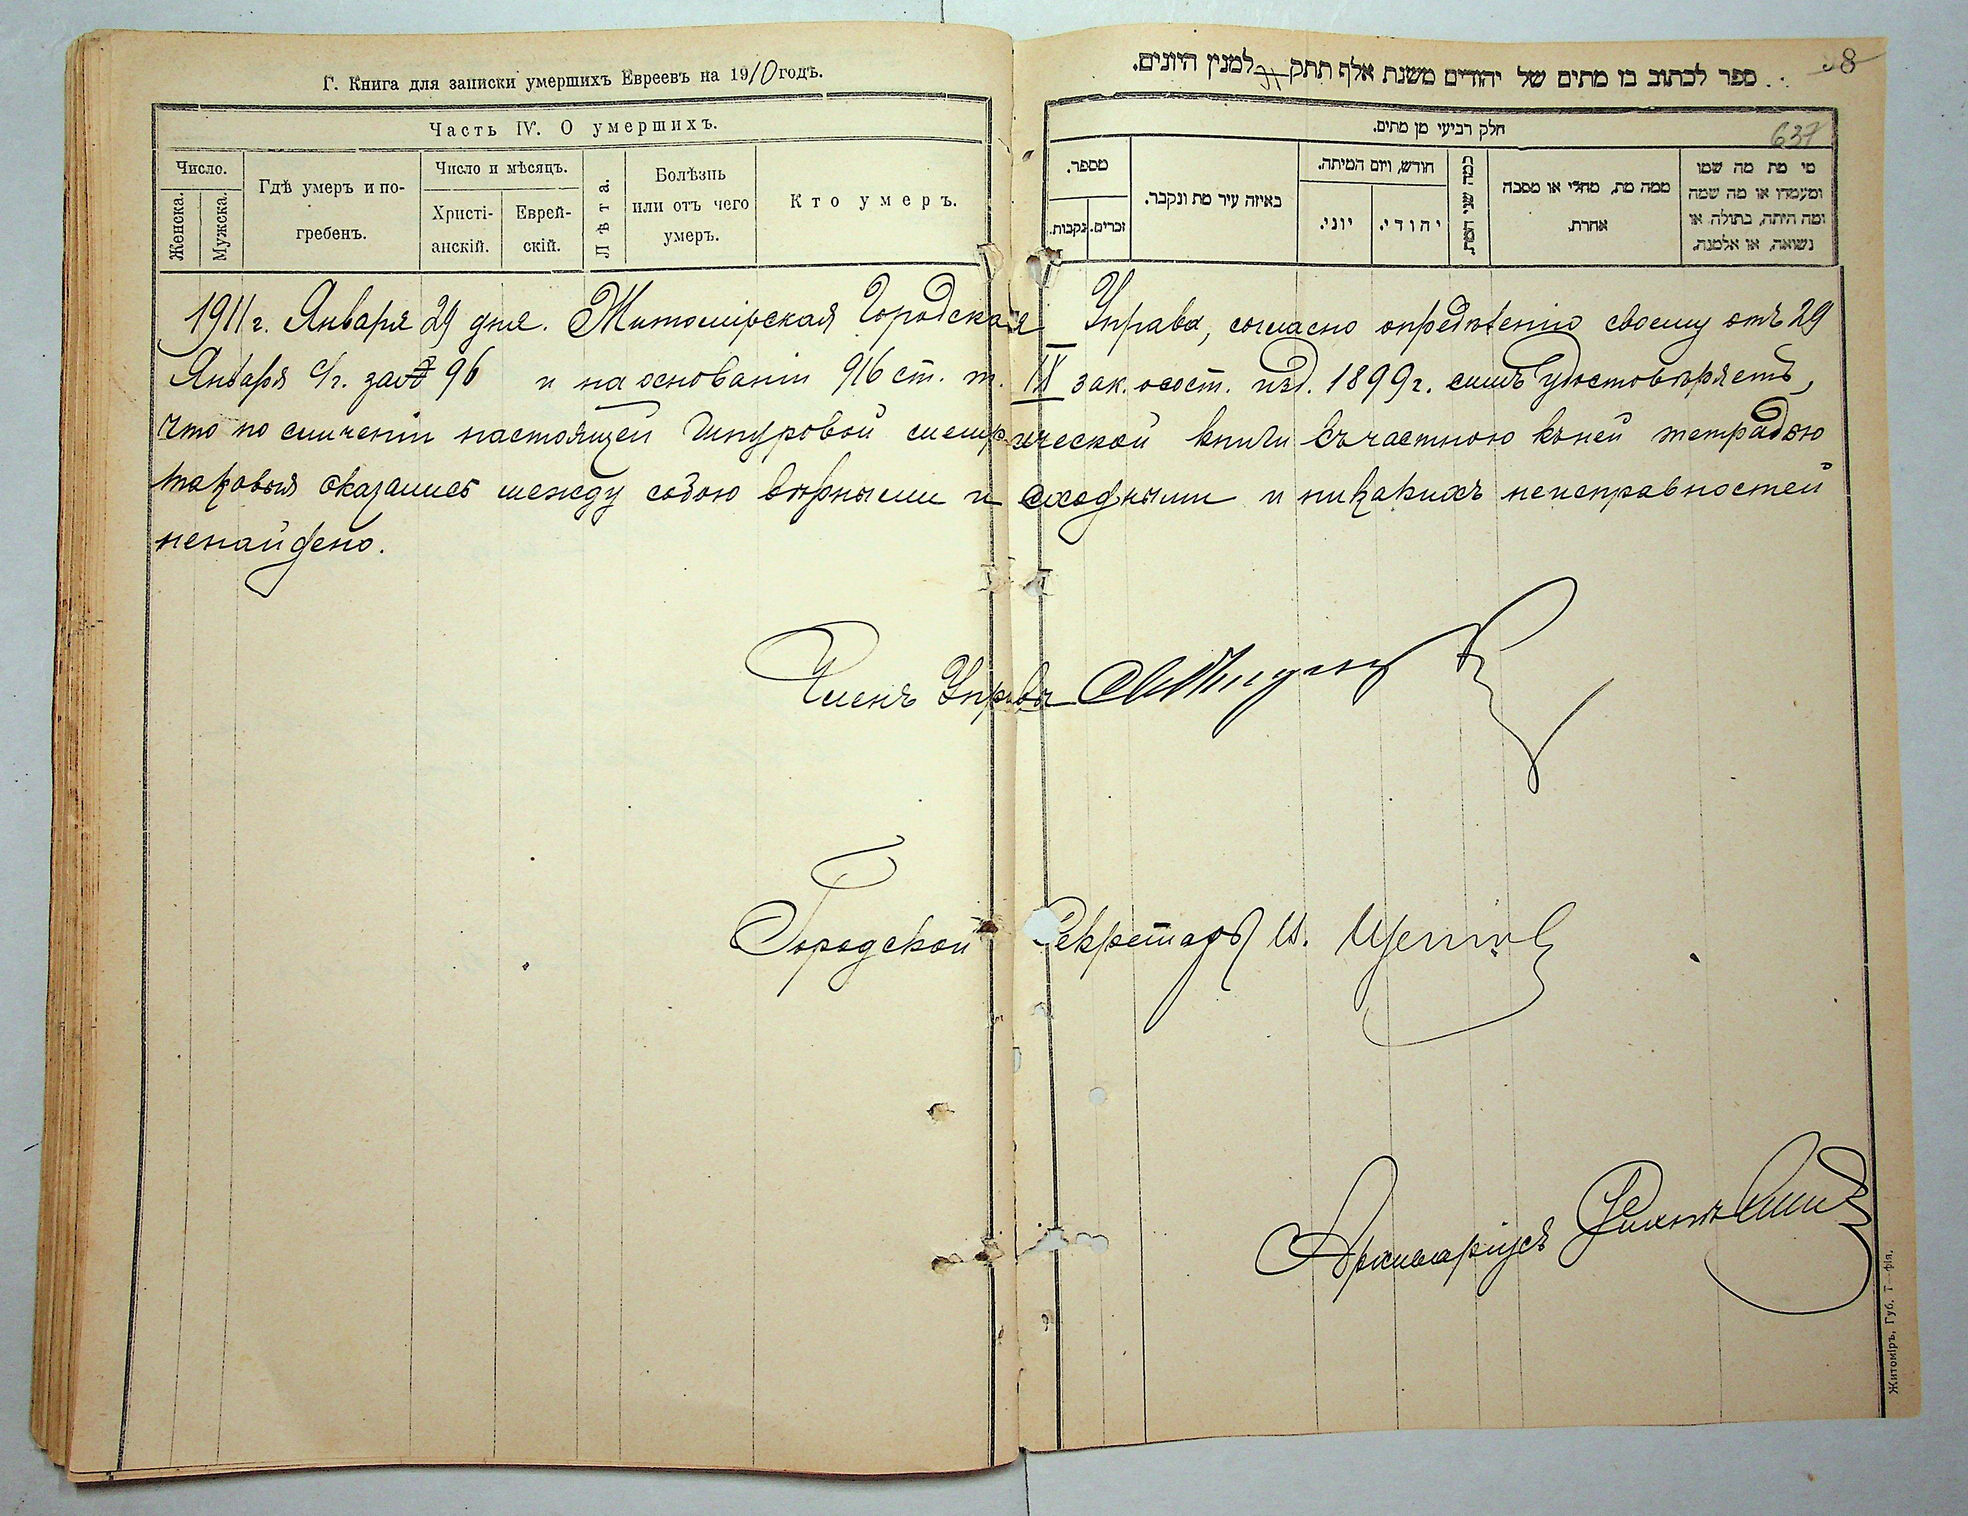 Г. Книга для записки умершихъ Евреевъ на 1910 годъ.
Часть IV. О умершихъ.
Число.
Женска.
Мужска.
Гдѣ умеръ и по-
гребенъ.
Число и мѣсяцъ.
Христі-
анскій.
Еврей-
скій.
Лѣта.
Болѣзнь
или отъ чего
умеръ.
Кто умеръ.
ספר לכתוב בו מתים של יהודים משנת אלף תתק למנין היונים.
38
637
חלק רביעי מן מתים.
מספר.
נקבות.
זכרים.
באיזה עיר מת ונקבר.
חודש, ויום המיתה.
יוני.
יהודי.
כמה שני המת
ממה מת, מחלי או מסבה
אחרת.
מי מת מה שמו
ומעמדו או מה שמה
ומה היתה, בתולה או
נשואה, או אלמנה.
1911 г. Января 29 дня. Житомірская Городская Управа, согласно опредѣленію своему отъ 29
Января с/г. за № 96 и на основаніи 916 ст. т. IX зак. о сост. изд. 1899 г. симъ удостовѣряетъ,
что по сличеніи настоящей шнуровой метрической книги съ частною къ ней тетрадью
таковыя оказались между собою вѣрными и сходными и никакихъ неисправностей
ненайдено.
Членъ Управы
Городской Секретарь И.
Архиваріусъ
Житоміръ, Губ. Т фія.